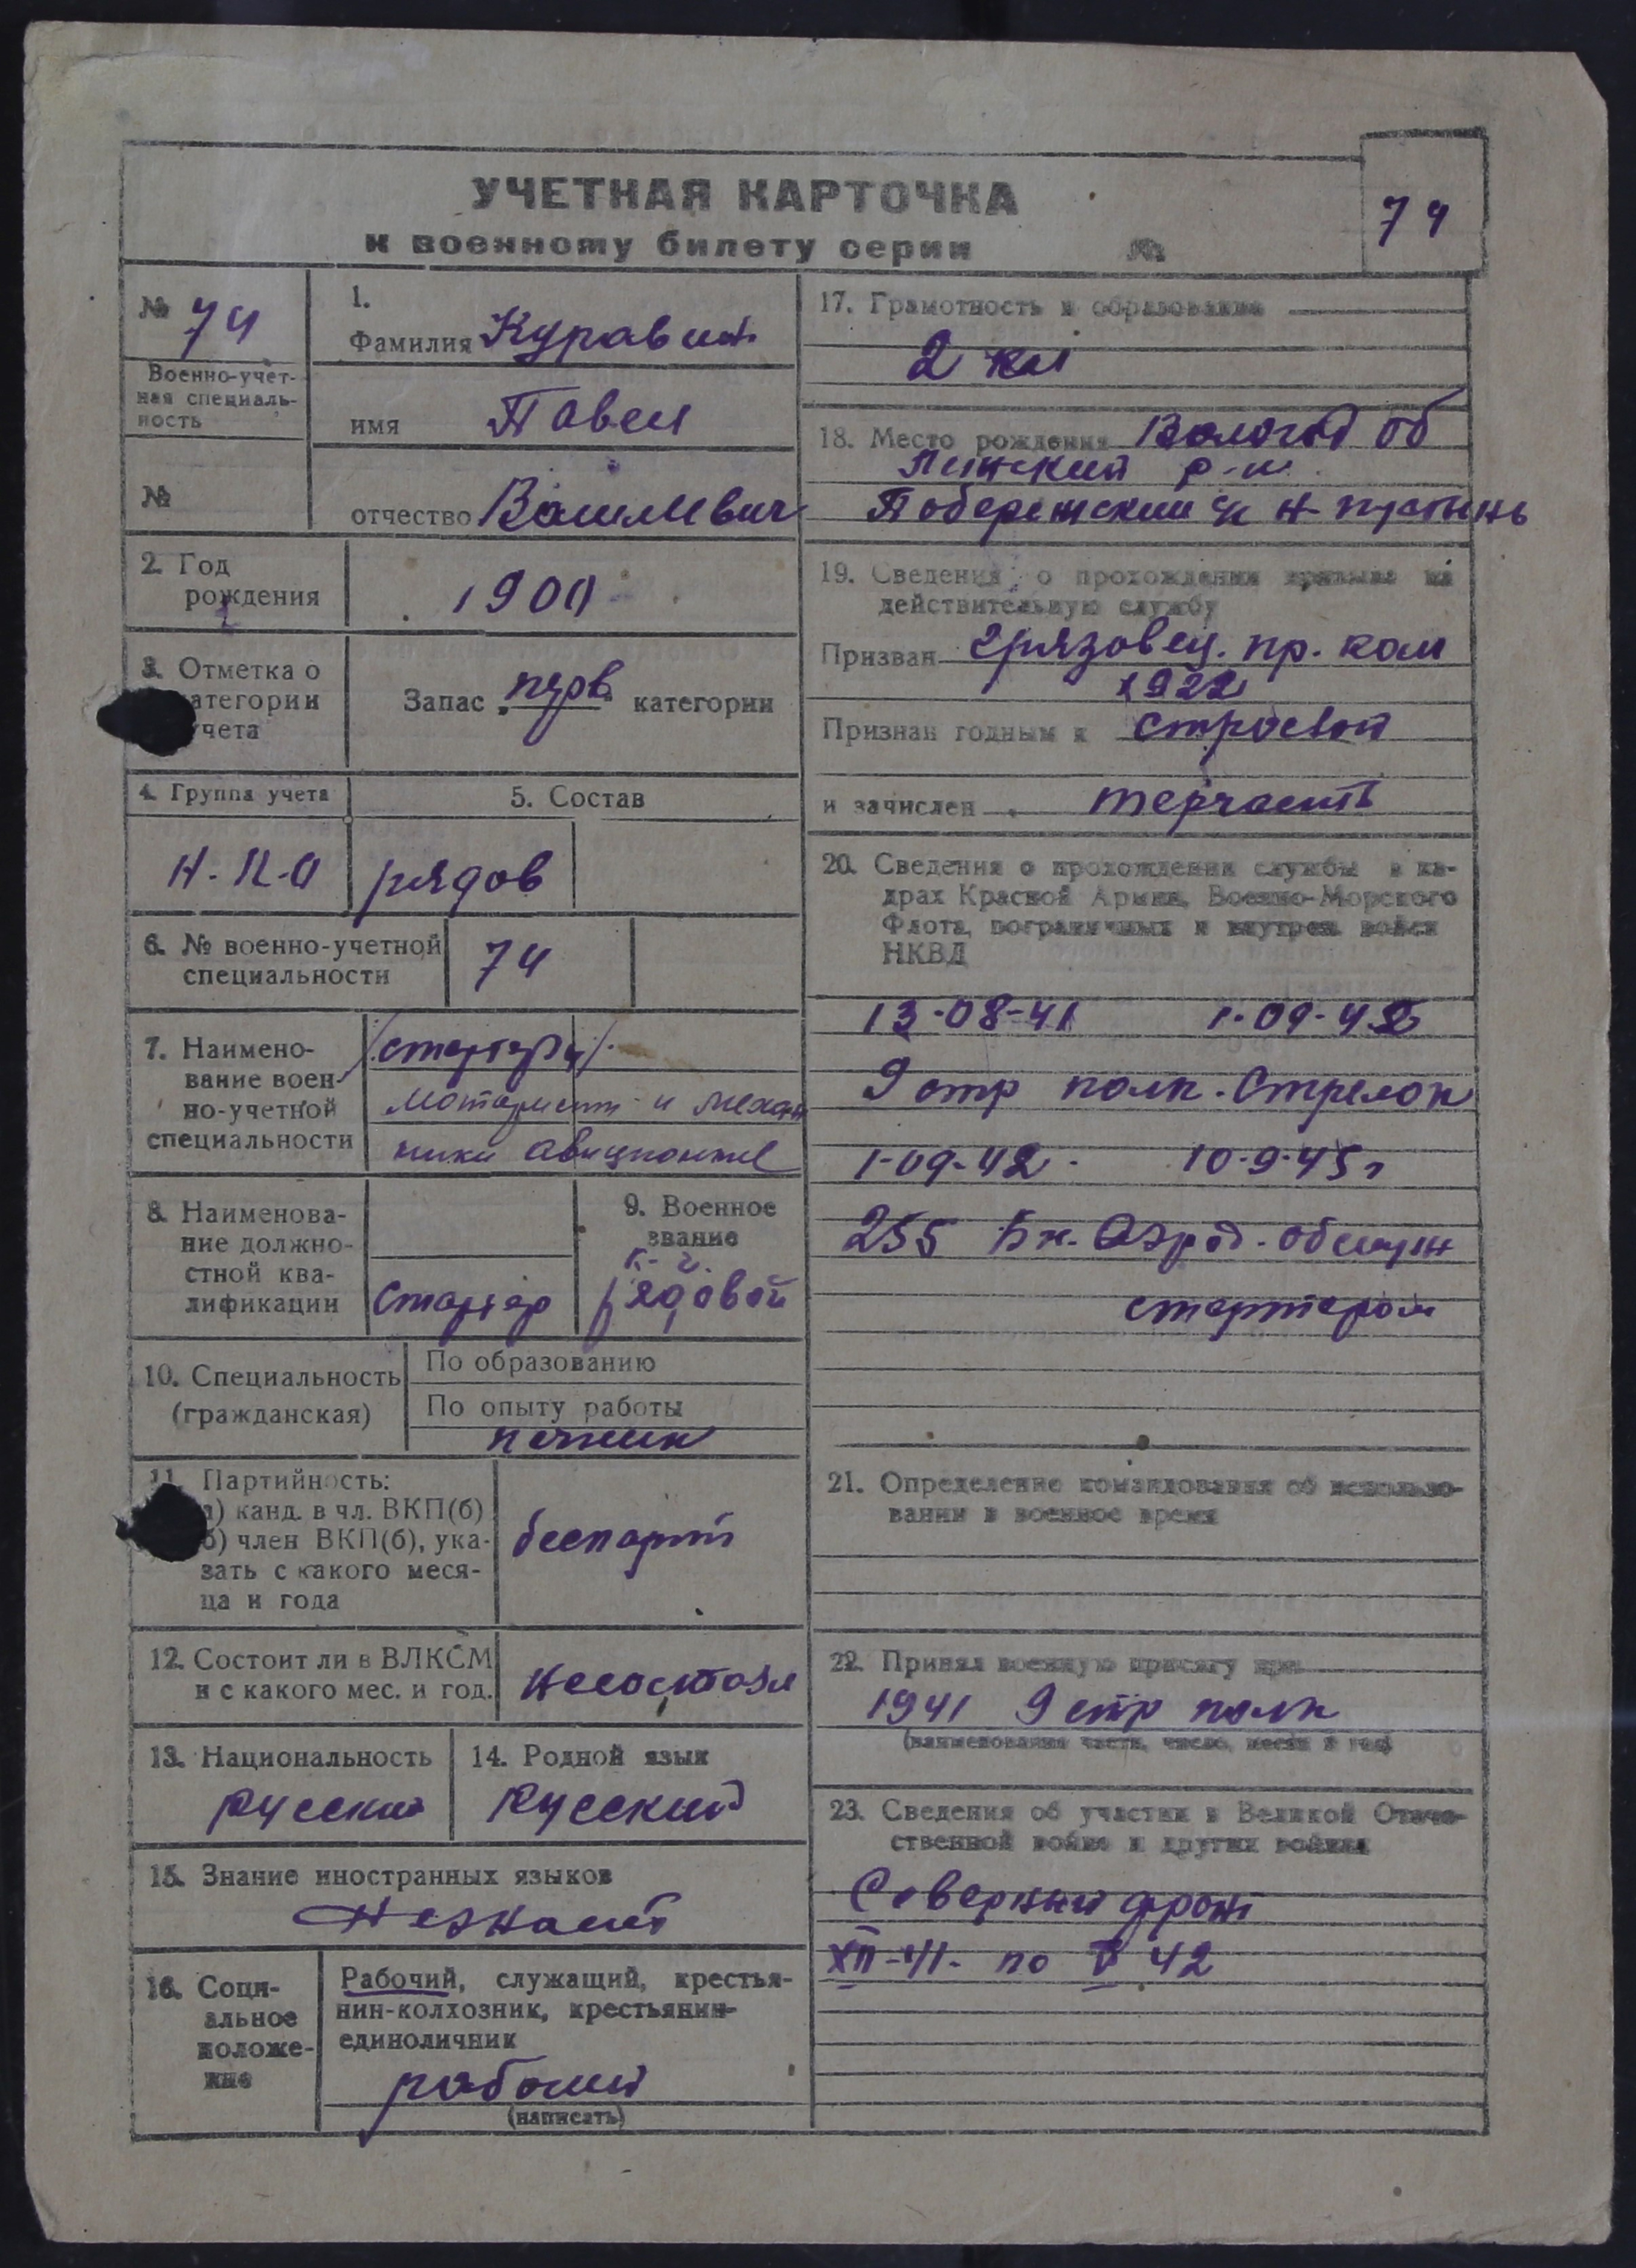 УЧЕТНАЯ КАРТОЧКА
к военному билету серии №
74
№ 74
Военно-учет-
ная специаль-
ность
№
1.
Фамилия Куравин
имя Павел
отчество Васильевич
2. Год
рождения
1900
3. Отметка о
категории
учета
Запас "перв" категории
4. Группа учета
5. Состав
рядов
6. № военно-учетной
специальности
74
7. Наимено-
вание воен-
но-учетной
специальности
/стартеры/
Мотористы и механ
ники авиционные
8. Наименова-
ние должно-
стной ква-
лификации
Стартер
9. Военное
звание
рядовой
10. Специальность
(гражданская)
По образованию
По опыту работы
печник
11. Партийность:
а) канд. в чл. ВКП(б)
б) член ВКП(б), ука-
зать с какого меся-
ца и года
беспарт
12. Состоит ли в ВЛКСМ
и с какого мес. и год.
несостоял
13. Национальность
русский
14. Родной язык
Русский
15. Знание иностранных языков
Незнает
16. Соци-
альное
положе-
ние
Рабочий, служащий, крестья-
нин-колхозник, крестьянин-
единоличник
рабочий
(написать)
17. Грамотность и образование
2 кл
18. Место рождения Вологод об
р-н
Побережский
19. Сведения о прохождении призыва на
действительную службу
Призван Грязовец. пр. ком
1922
Признан годным к строевой
и зачислен терчасть
20. Сведения о прохождении службы в ка-
драх Красной Армии, Военно-Морского
Флота, пограничных и внутрен. войск
НКВД
13-08-41 1-09-42
9 стр полк. Стрелок
1-09-42 10-9-45г
255 Бн. Аэрод. обслуж
стартером
21. Определение командования об использо-
вании в военное время
22. Принял военную присягу при
1941 9 стр полк
(наименование части, число, месяц и год)
23. Сведения об участии в Великой Отече-
ственной войне и других войнах
Северный фронт
XII-41. по V 42